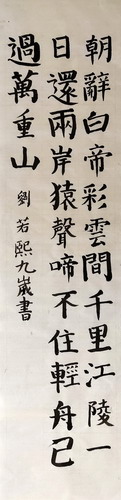 朝辭白帝彩雲間千里江陵一
日還兩岸猿聲啼不住輕舟已
過萬重山
劉若熙九歲書